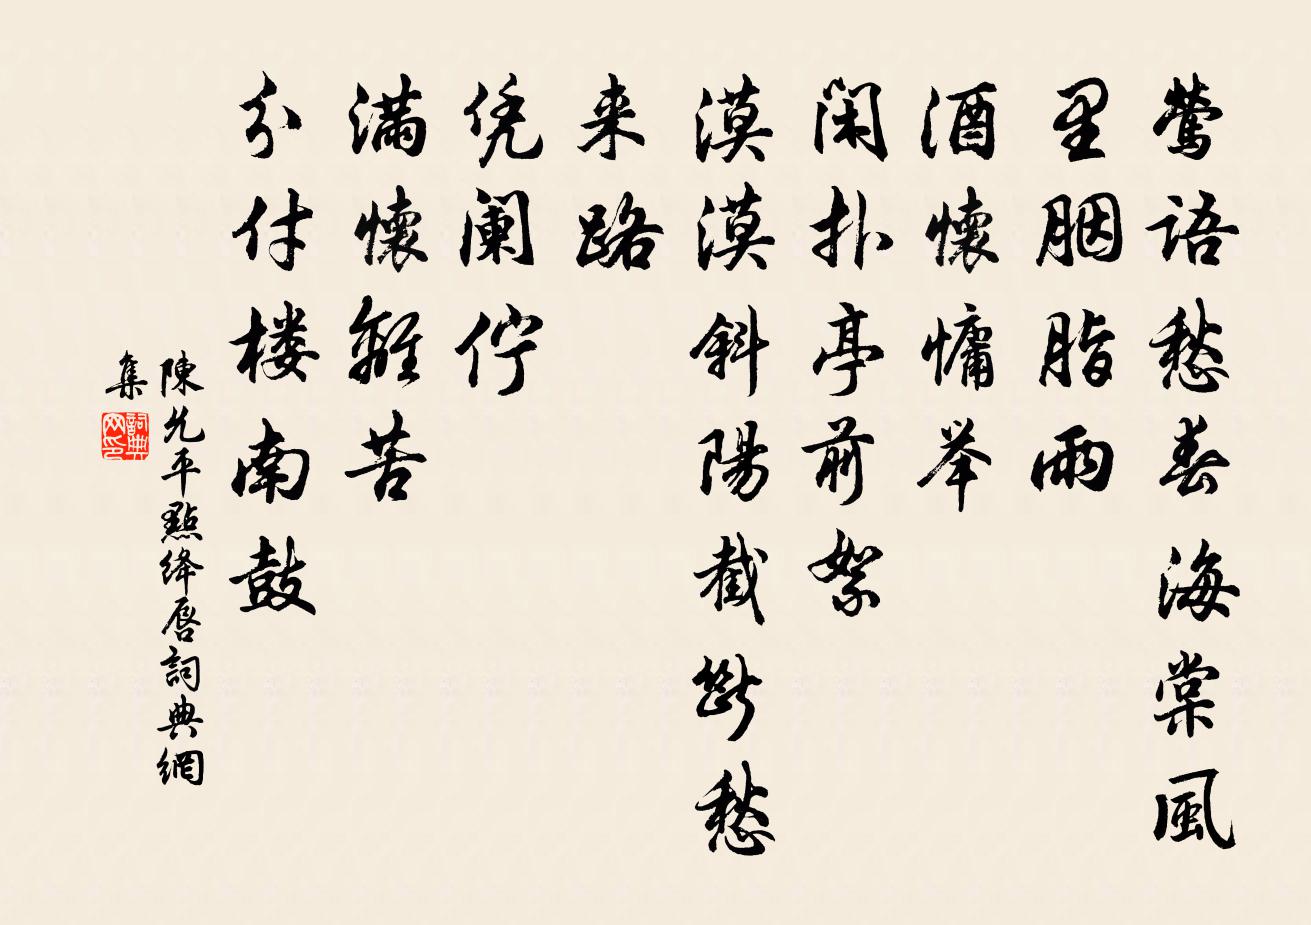 鶯語愁春海棠風
里胭脂雨
酒懷慵举
閑扑亭前絮
漠漠斜陽截斷愁
来路
凭阑伫
滿懷離苦
分付楼南鼓
陳允平點絳唇詞典網
集
詞典
网印